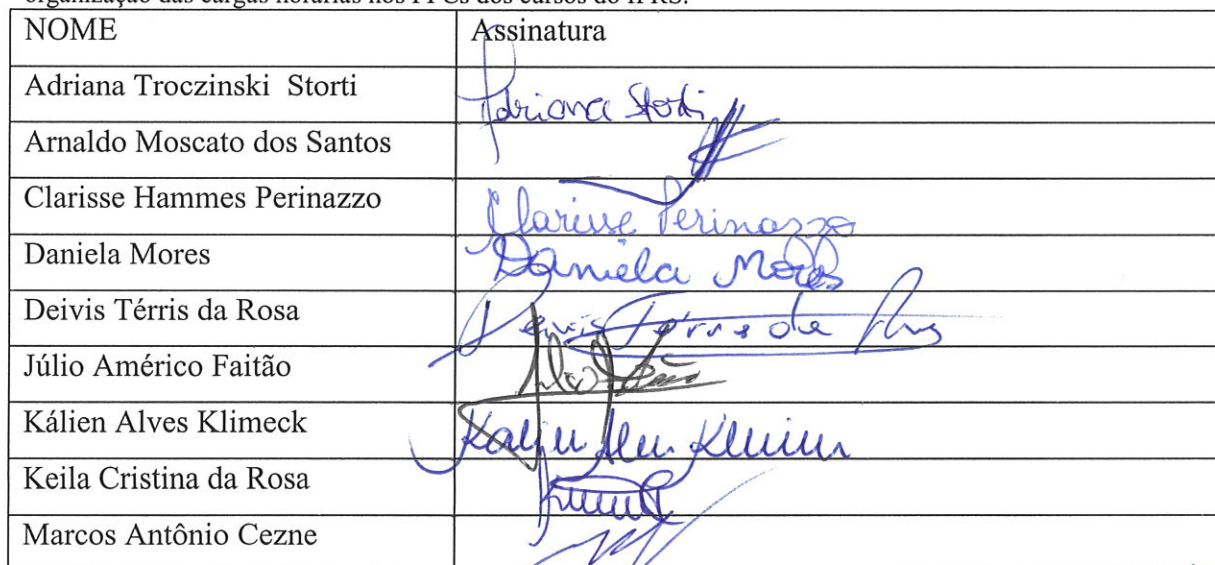 organização das cargas horárias nos PPCs dos cursos do IFRS.
NOME Assinatura
Adriana Troczinski Storti Adriana Storti
Arnaldo Moscato dos Santos
Clarisse Hammes Perinazzo Clarisse Perinazzo
Daniela Mores Daniela Mores
Deivis Térris da Rosa Deivis Térris da
Júlio Américo Faitão
Kálien Alves Klimeck
Keila Cristina da Rosa
Marcos Antônio Cezne